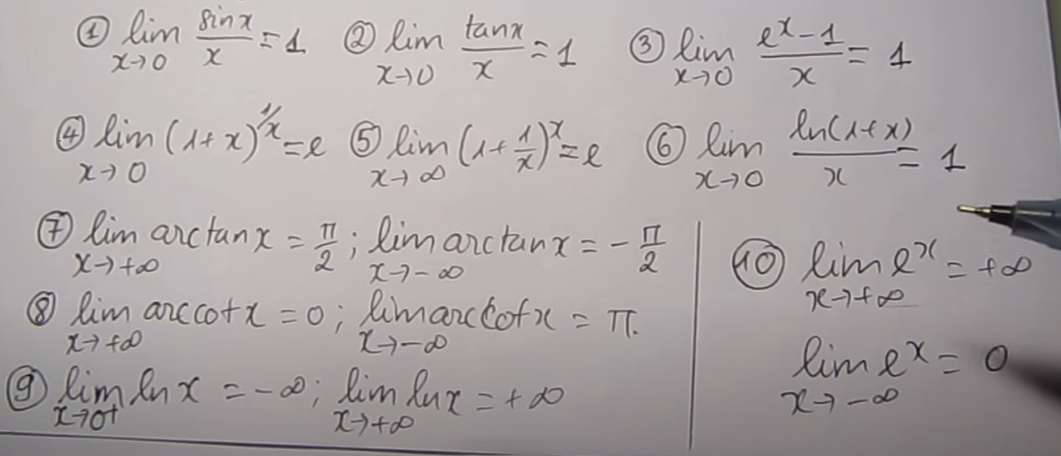 ① lim x→0 sinx/x = 1 ② lim x→0 tanx/x = 1 ③ lim x→0 (e^x - 1)/x = 1
④ lim x→0 (1+x)^(1/x) = e ⑤ lim x→∞ (1+1/x)^x = e ⑥ lim x→0 ln(1+x)/x = 1
⑦ lim x→+∞ arctanx = π/2 ; lim x→-∞ arctanx = -π/2
⑧ lim x→+∞ arccotx = 0 ; lim x→-∞ arccotx = π.
⑨ lim x→0+ lnx = -∞ ; lim x→+∞ lnx = +∞
⑩ lim x→+∞ e^x = +∞
lim x→-∞ e^x = 0